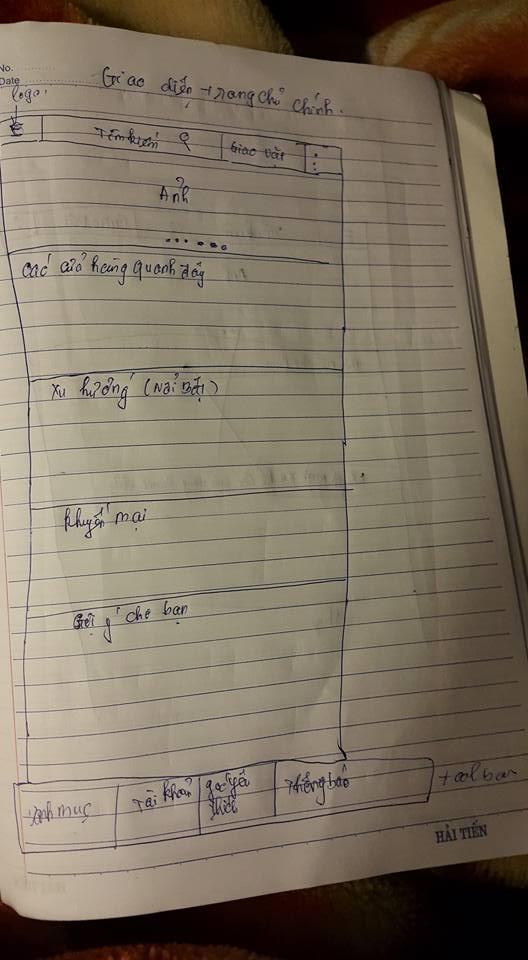 No.
Date
Giao diện trang chủ chính.
logo.
Tìm kiếm
Giao vặt
Ảnh
các cửa hàng quanh đây
Xu hướng (Nổi Bật)
khuyến mại
Gợi ý cho bạn
Danh mục
Tài khoản
yêu
thích
Thông báo
tool bar
HẢI TIẾN